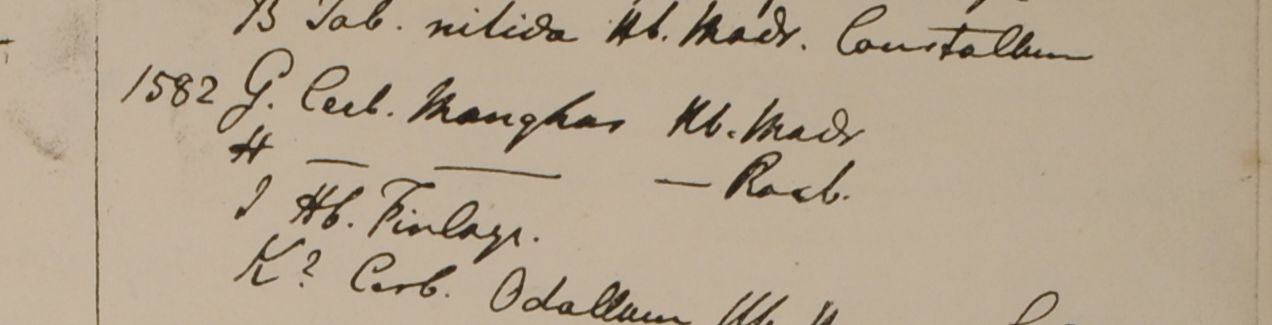 B Tab. nitida Hb. Madr. Courtallum
1582 G. Cerb. Manghas Hb. Madr
H — — — Roxb.
I Hb. Finlays.
K? Cerb. Odallam Hb.